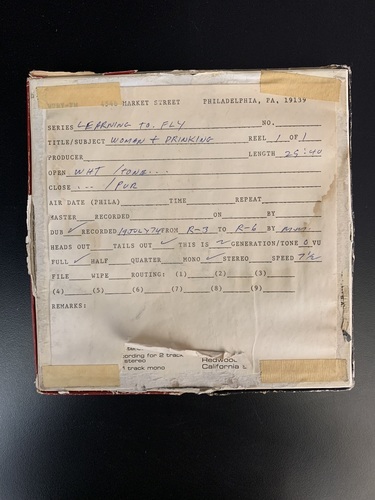 MARKET STREET PHILADELPHIA, PA, 19139
SERIES LEARNING TO FLY NO.
TITLE/SUBJECT WOMEN + DRINKING REEL 1 OF 1
PRODUCER LENGTH 25:40
OPEN WHT /TONE...
CLOSE ... /PUR
AIR DATE (PHILA) TIME REPEAT
MASTER RECORDED ON BY
DUB ✓ RECORDED 14JULY74 FROM R-3 TO R-6 BY
HEADS OUT TAILS OUT ✓ THIS IS 2 GENERATION/TONE 0 VU
FULL ✓ HALF QUARTER MONO ✓ STEREO SPEED 7½
FILE WIPE ROUTING: (1) (2) (3)
(4) (5) (6) (7) (8) (9)
REMARKS:
ording for 2 track
stereo
track mono
Redwood
California